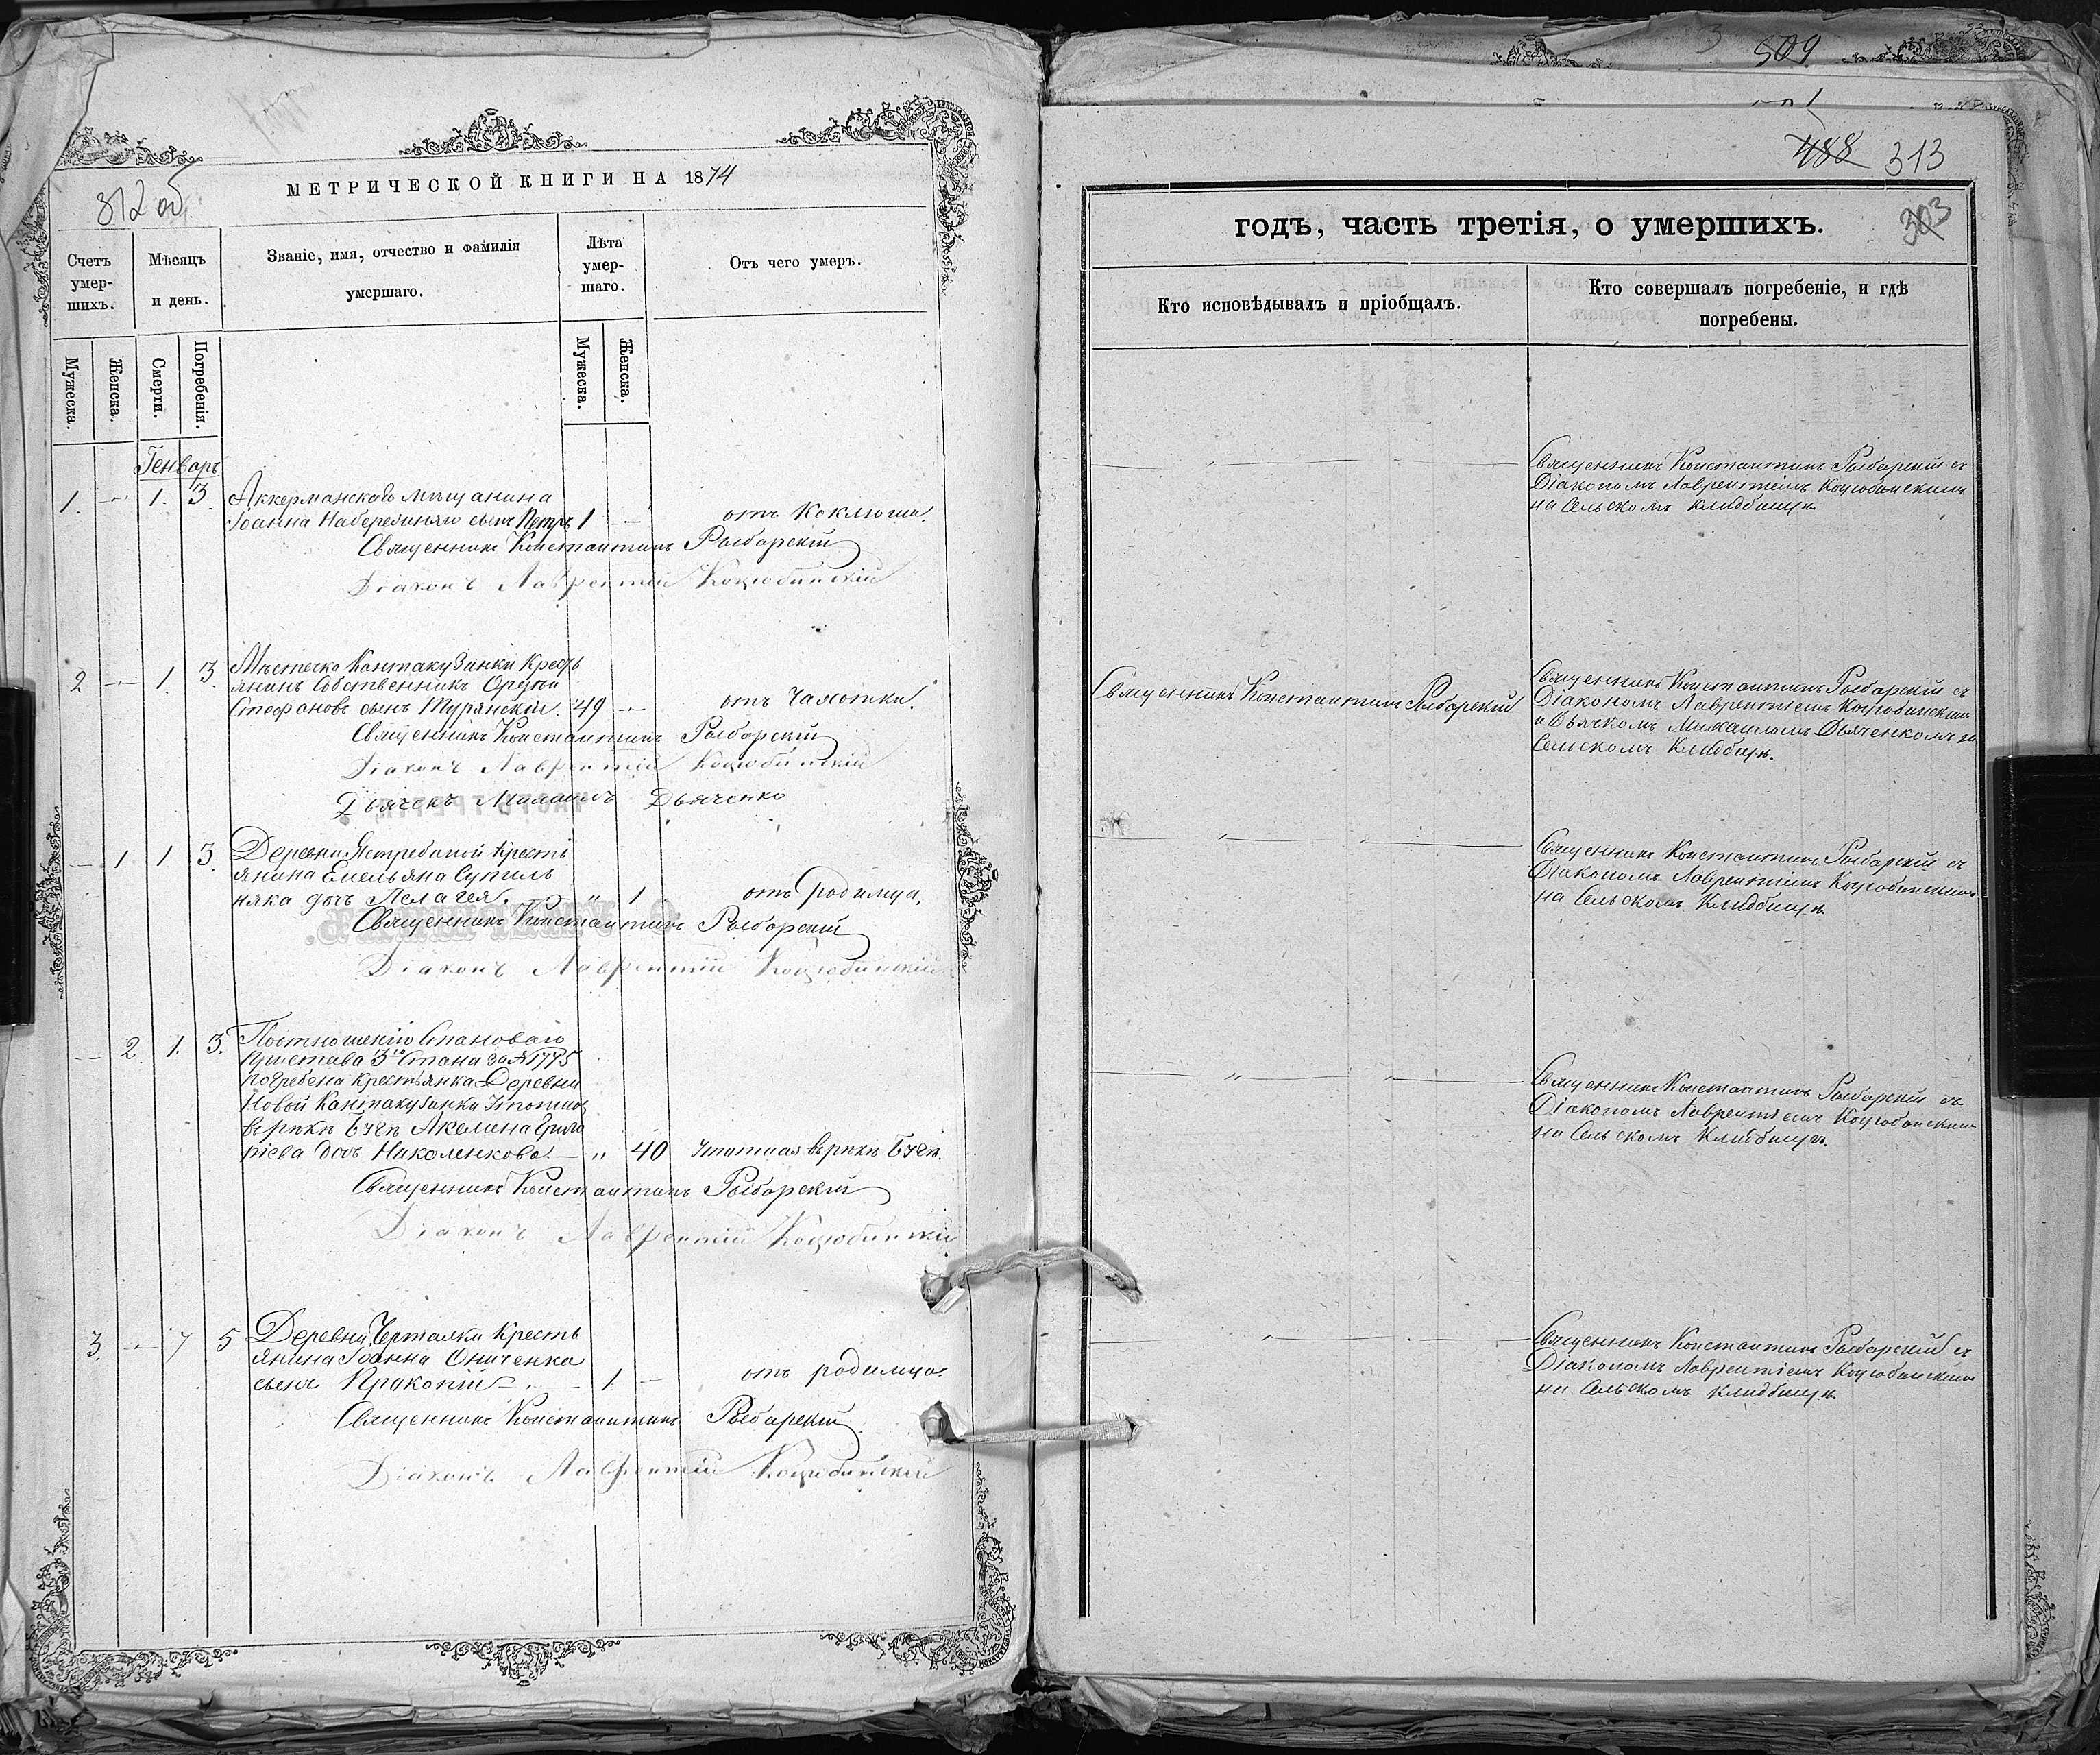 312 об
МЕТРИЧЕСКОЙ КНИГИ НА 1874
Счетъ умер-шихъ.
Мѣсяцъ и день.
Званіе, имя, отчество и фамилія умершаго.
Лѣта умер-шаго.
Отъ чего умеръ.
Мужеска.
Женска.
Смерти.
Погребенія.
Мужеска.
Женска.
Генварь
1. 1. 3. Аккерманскаго мѣщанина
Іоанна Набережняго сынъ Петръ 1 отъ Коклюша.
Священникъ Константинъ Рыбарскій
Діаконъ Лаврентій Коцюбинскій
2 1. 3. Мѣстечка Кантакузинки Кресть
янинъ Собственникъ
Стефановъ сынъ Турянскій. 49 отъ Чахотки.
Священникъ Константинъ Рыбарскій
Діаконъ Лаврентій Коцюбинскій
Дьячекъ Михаилъ Дьяченко
1 1 3. Деревни Ястребиной Кресть
янина Емельяна Супиль
няка дочь Пелагея. " 1 отъ Родимца.
Священникъ Константинъ Рыбарскій
Діаконъ Лаврентій Коцюбинскій
2. 1. 3. Поотношенію Становаго
Пристава 3го Стана за № 1775
погребена крестьянка Деревни
Новой Кантакузинки
врѣкѣ Бугѣ Акелина Григо
ріева дочь Николенкова. " 40 врѣкѣ Бугѣ.
Священникъ Константинъ Рыбарскій
Діаконъ Лаврентій Коцюбинскій
3. 7 5 Деревни Черталки Кресть
янина Іоанна Ониченка
сынъ Прокопій 1. отъ родимца.
Священникъ Константинъ Рыбарскій
Діаконъ Лаврентій Коцюбинскій
3 509
488 313
303
годъ, часть третія, о умершихъ.
Кто исповѣдывалъ и пріобщалъ.
Кто совершалъ погребеніе, и гдѣ
погребены.
Священникъ Константинъ Рыбарскій съ
Діакономъ Лаврентіемъ Коцюбинскимъ
на Сельскомъ кладбищѣ.
Священникъ Константинъ Рыбарскій
Священникъ Константинъ Рыбарскій съ
Діакономъ Лаврентіемъ Коцюбинскимъ
и Дьячкомъ Михаиломъ Дьяченкомъ на
Сельскомъ Кладбищѣ.
Священникъ Константинъ Рыбарскій съ
Діакономъ Лаврентіемъ Коцюбинскимъ
на Сельскомъ Кладбищѣ
Священникъ Константинъ Рыбарскій съ
Діакономъ Лаврентіемъ Коцюбинскимъ
на Сельскомъ Кладбищѣ.
Священникъ Константинъ Рыбарскій съ
Діакономъ Лаврентіемъ Коцюбинскимъ
на Сельскомъ кладбищѣ